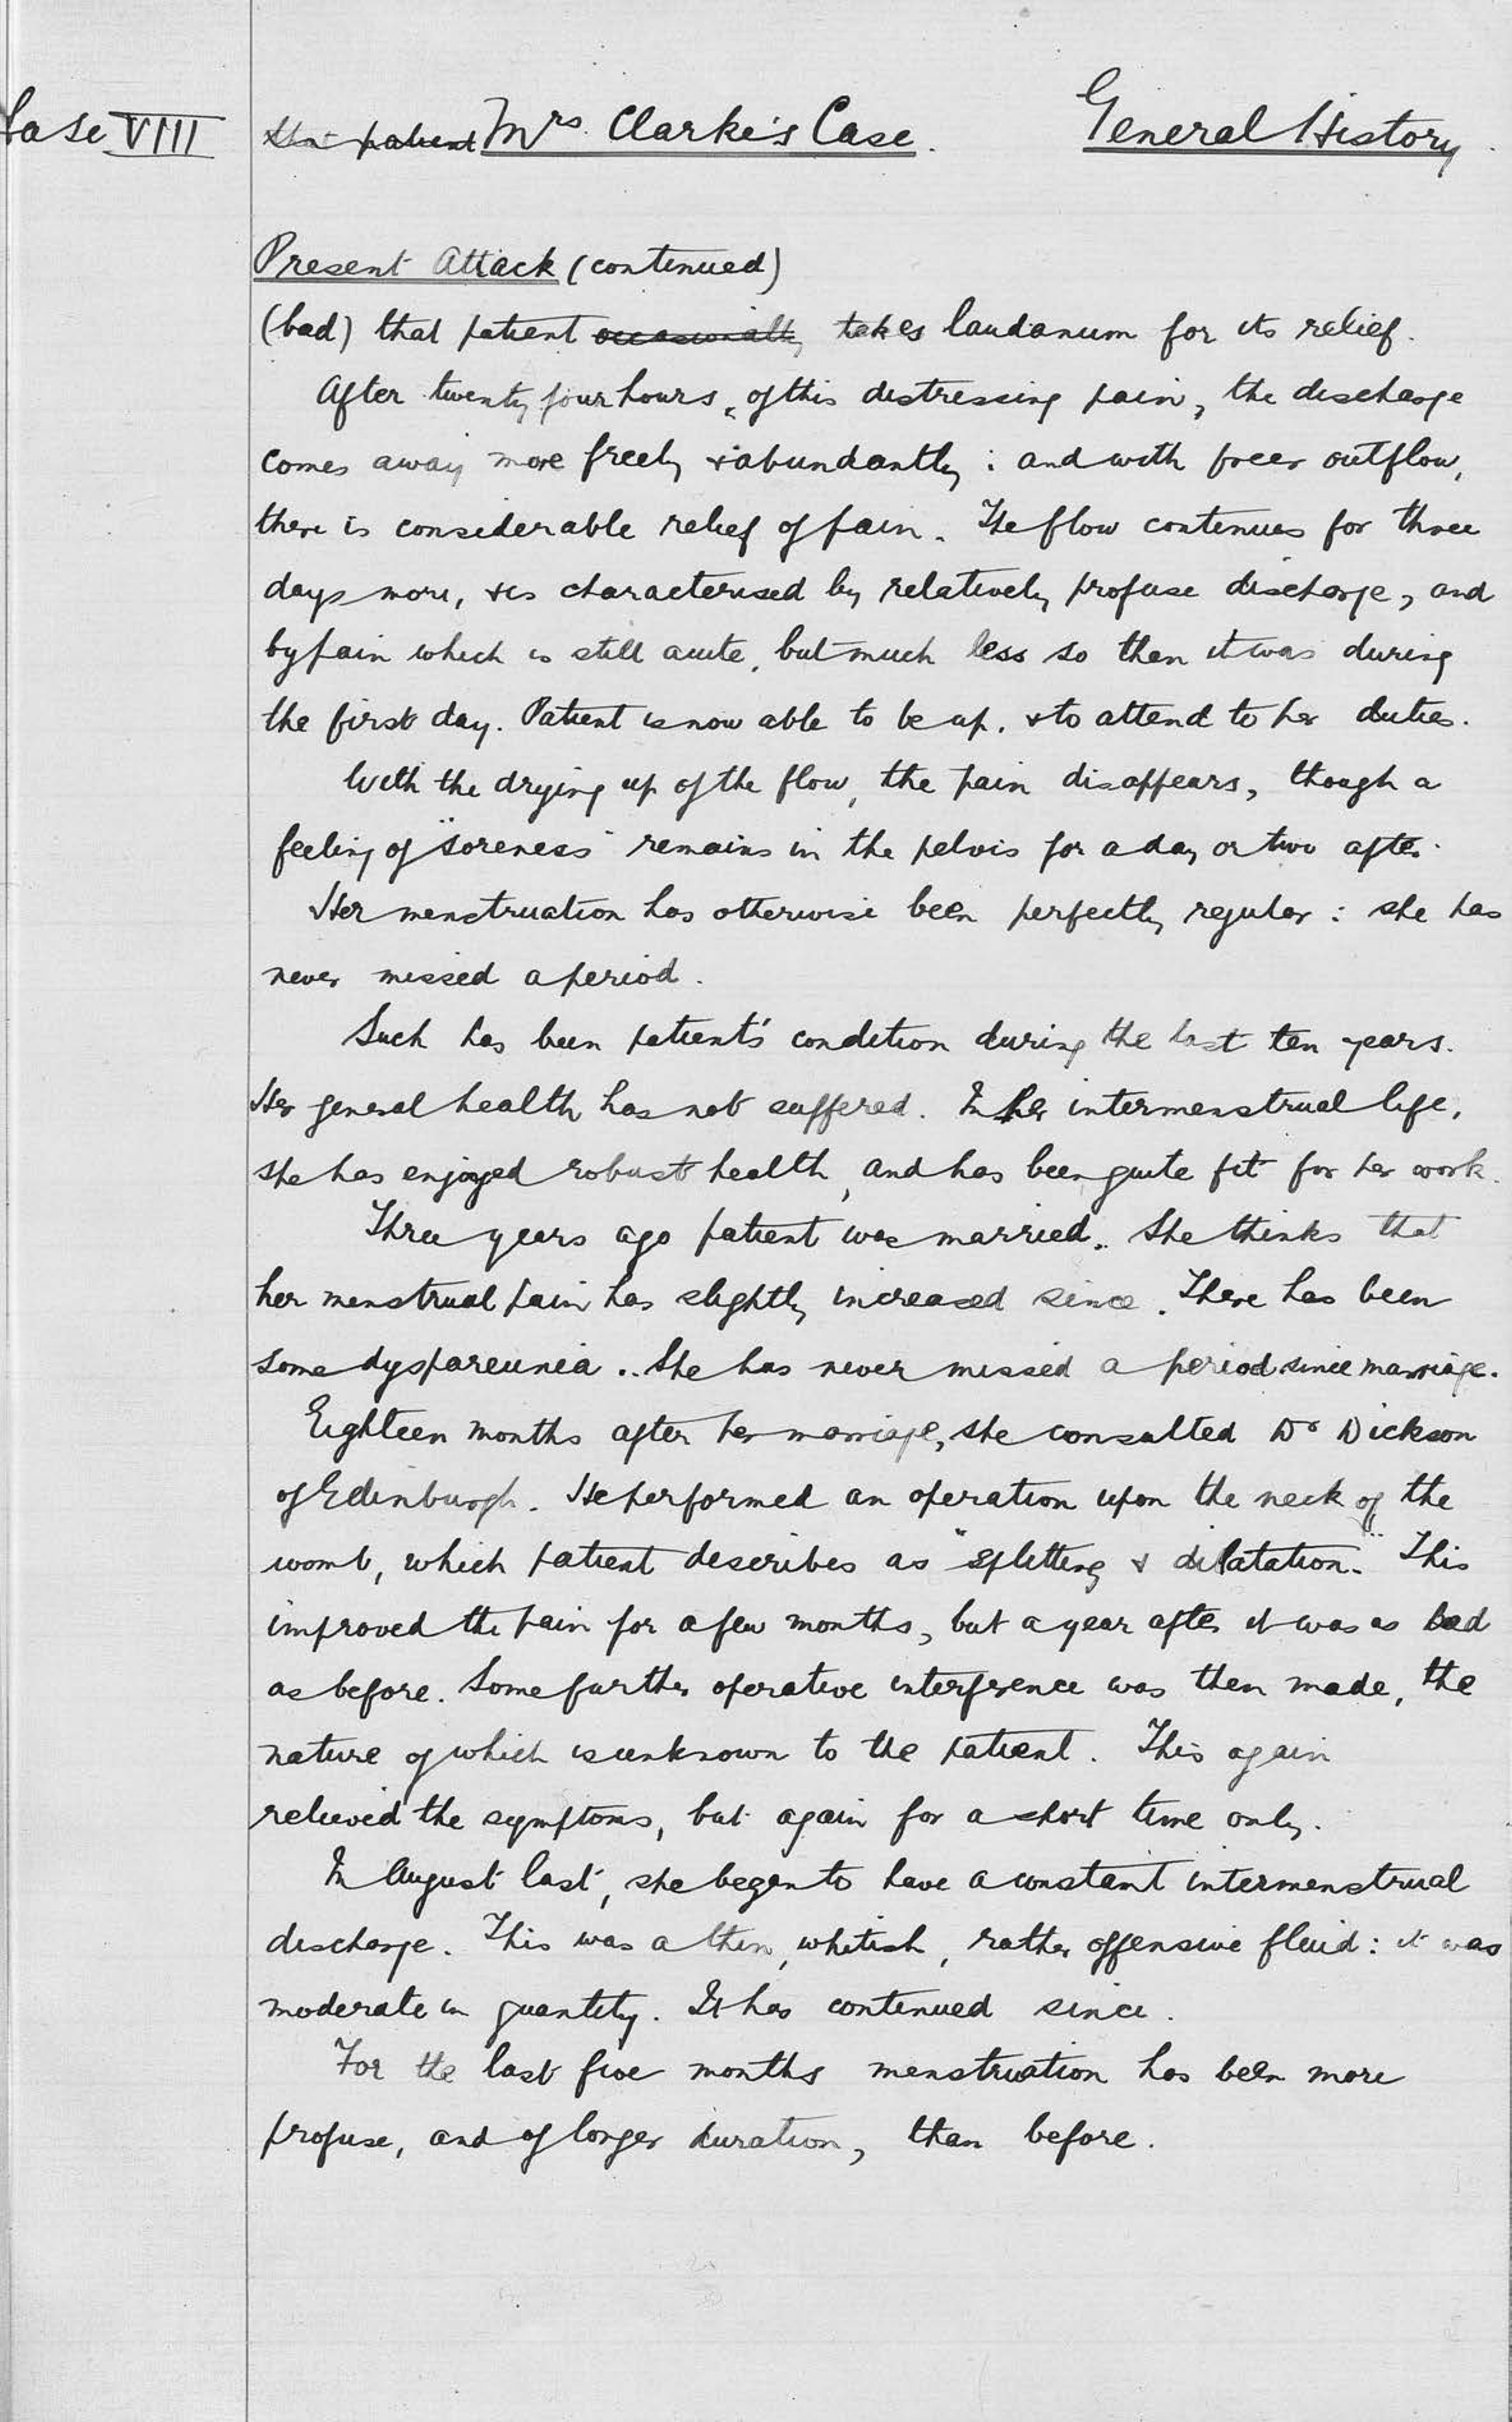 Case VIII
the patient Mrs Clarke's Case. General History.
Present Attack (continued)
(bad) that patient occasionally takes laudanum for its relief.
After twenty four hours, of this distressing pain, the discharge
comes away more freely & abundantly: and with freer outflow,
there is considerable relief of pain. The flow continues for three
days more, & is characterised by relatively profuse discharge, and
by pain which is still acute, but much less so than it was during
the first day. Patient is now able to be up, & to attend to her duties.
With the drying up of the flow, the pain disappears, though a
feeling of "soreness" remains in the pelvis for a day or two after.
Her menstruation has otherwise been perfectly regular: she has
never missed a period.
Such has been patient's condition during the last ten years.
Her general health has not suffered. In her intermenstrual life,
she has enjoyed robust health, and has been quite fit for her work.
Three years ago patient was married. She thinks that
her menstrual pain has slightly increased since. There has been
some dyspareunia.. She has never missed a period since marriage.
Eighteen months after her marriage, she consulted Dr Dickson
of Edinburgh. He performed an operation upon the neck of the
womb, which patient describes as "splitting & dilatation." This
improved the pain for a few months, but a year after it was as bad
as before. Some further operative interference was then made, the
nature of which is unknown to the patient. This again
relieved the symptoms, but again for a short time only.
In August last, she began to have a constant intermenstrual
discharge. This was a thin, whitish, rather offensive fluid: it was
moderate in quantity. It has continued since.
For the last five months menstruation has been more
profuse, and of longer duration, than before.